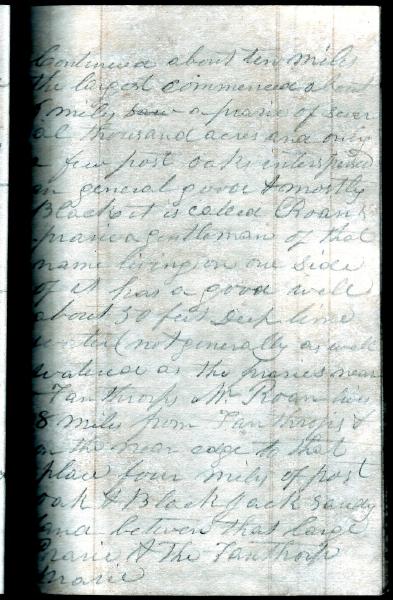 Continued about ten miles
the largest commenced about
5 miles saw a prarie of sever
al thousand acres and only
a few post oaks interspersed
in general good & mostly
Black it is called Roans
prarie a gentleman of that
name living on one side
of it has a good well
about 50 feet deep lime
water (not generally as well
watered as the praries near
Fanthorps Mr. Roan lives
8 miles from Fanthorps &
on the near edge to that
place four miles of post
oak & Black Jack sandy
land between that large
prarie & the Fanthorp
prarie